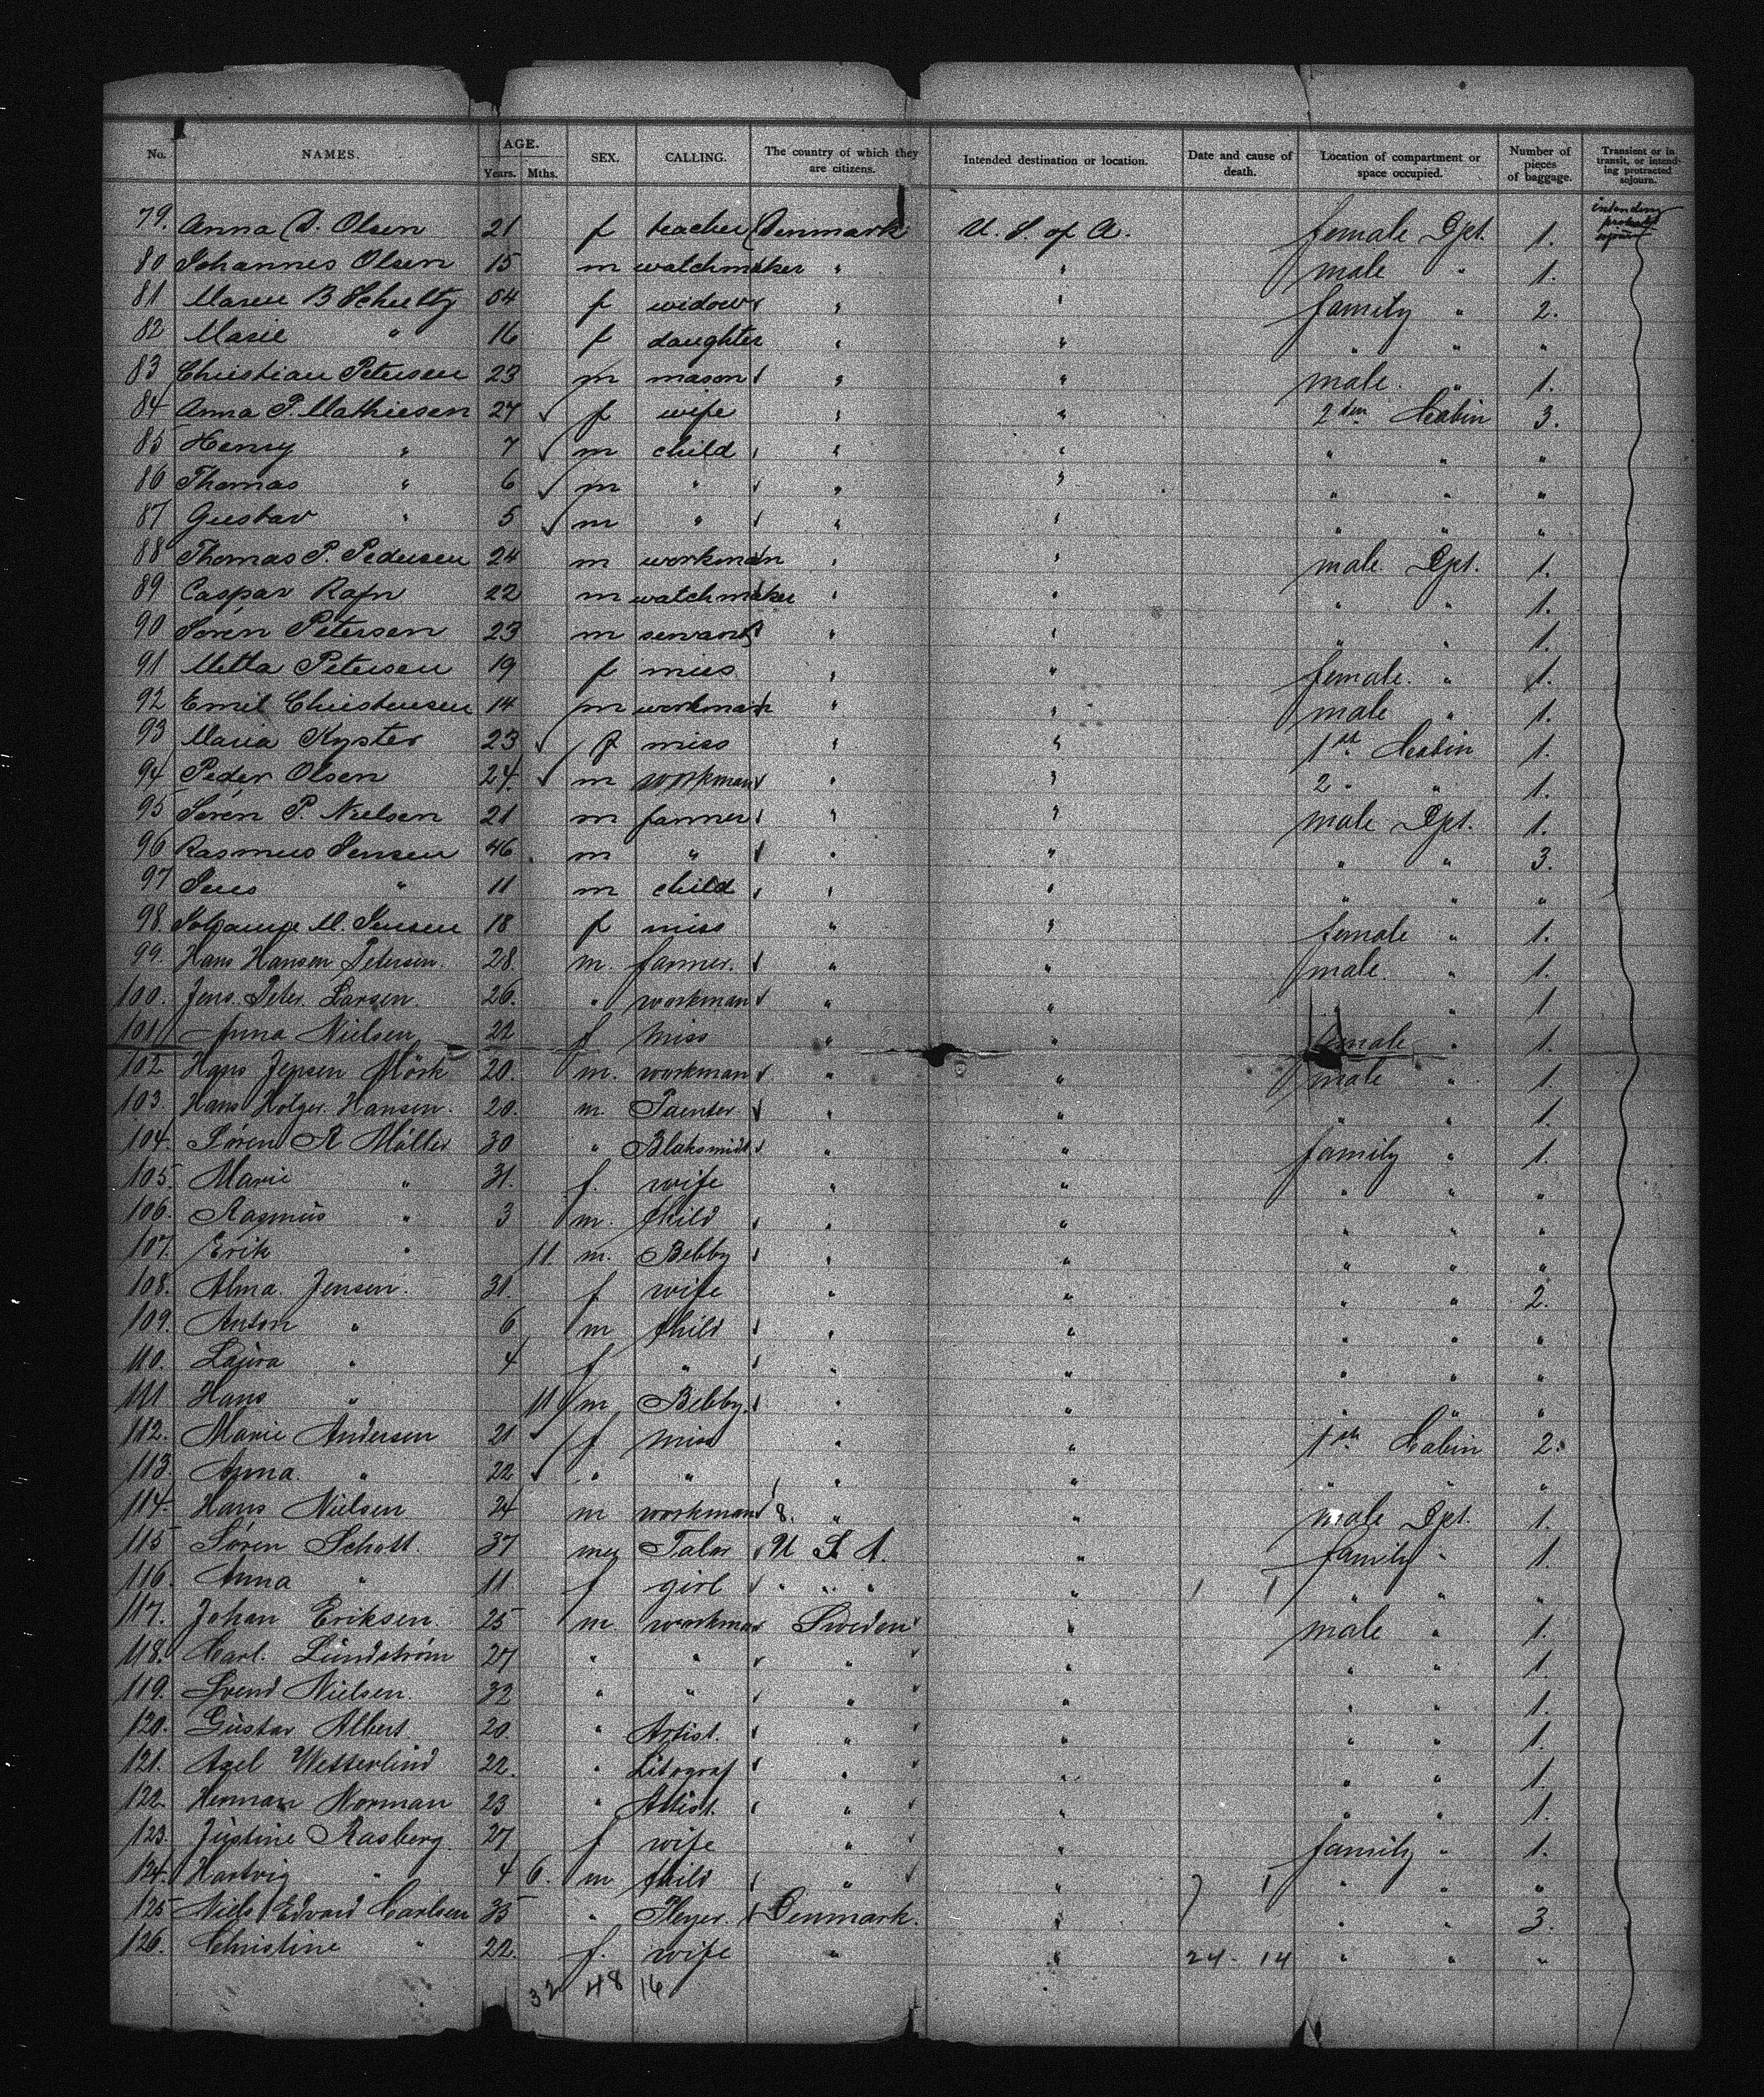 No. NAMES. AGE. Years. Mths. SEX. CALLING. The country of which they are citizens. Intended destination or location. Date and cause of death. Location of compartment or space occupied. Number of pieces of baggage. Transient or in transit, or intending protracted sojourn.
79. Anna D. Olsen 21 f teacher Denmark U. S. of A. female Dpt. 1. intending protracted sojourn
80 Johannes Olsen 15 m watchmaker " " male " 1.
81 Maren B Schultz 54 f widow " " family " 2.
82 Marie " 16 f daughter " " " " "
83 Christian Petersen 23 m mason " " male. " 1.
84 Anna P. Mathiesen 27 f wife " " 2den Cabin 3.
85 Henry " 7 m child " " " " "
86 Thomas " 6 m " " " " " "
87 Gustav " 5 m " " " " " "
88 Thomas P. Pedersen 24 m workman " " male Dpt. 1.
89 Caspar Rafn 22 m watchmaker " " " " 1.
90 Søren Petersen 23 m servant " " " " 1.
91 Metta Petersen 19 f miss " " female. " 1.
92 Emil Christensen 14 m workman " " male " 1.
93 Maria Kyster 23 f miss " " 1st Cabin 1.
94 Peder Olsen 24. m workman " " 2 " " 1.
95 Søren P. Nielsen 21 m farmer " " male Dpt. 1.
96 Rasmus Jensen 46 m " " " " " 3.
97 Jens " 11 m child " " " " "
98. Johanne M. Jensen 18 f miss " " female " 1.
99. Hans Hansen Petersen. 28. m. farmer. " " male. " 1.
100. Jens Peter Larsen 26. " workman " " " " 1
101 Anna Nielsen 22 f miss " " female " 1.
102 Hans Jensen Mörk 20. m. workman " " male " 1.
103. Hans Holger Hansen. 20. m. Paenter " " " " 1.
104. Søren R Möller 30 " Blaksmidt " " family " 1.
105. Marie " 31. f. wife " " " " "
106. Rasmus " 3 m. child " " " " "
107. Erik " 11. m. Bebby " " " " "
108. Alma Jensen. 31. f wife " " " " 2.
109. Anton " 6 m child " " " " "
110. Laura " 4 f " " " " " "
111 Hans " 11 m Bebby. " " " " "
112. Marie Andersen 21 f miss " " 1st Cabin 2.
113. Anna. " 22 " " " " " " "
114. Hans Nielsen 24 m workman 8. " " male Dpt. 1.
115 Søren Schott. 37 m Talor U S A. " family " 1.
116. Anna " 11. f girl " " " " " " "
117. Johan Eriksen. 25 m. workman Sweden " male " 1.
118. Carl. Lundström 27 " " " " " " 1.
119. Svend Nielsen. 32 " " " " " " 1.
120. Gustav Albert. 20. " Artist. " " " " 1.
121. Axel Wetterlind 22. " Litograf " " " " 1.
122. Herman Norman 23 " Attist. " " " " 1.
123. Justine Rasberg. 27 f wife " " family " 1.
124. Hartvig " 4 6. m child " " " " "
125 Niels Edvard Carlsen 35 " Denmark. " " " 3.
126. Christine " 22. f. wife " " 24 - 14 " " "
32 48 16